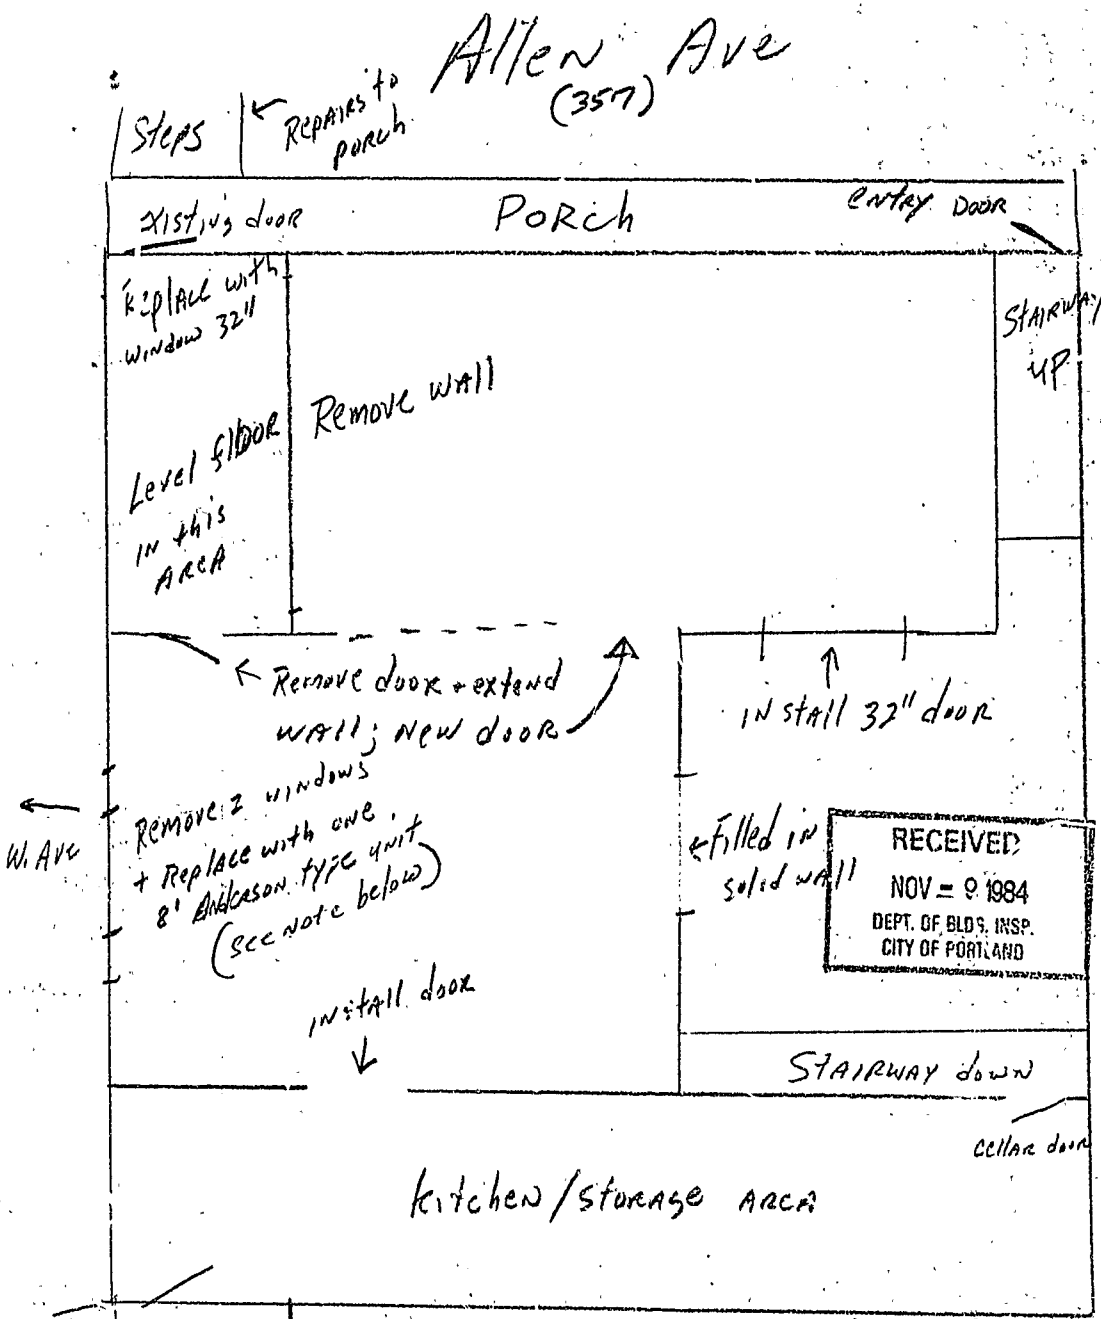 Allen Ave
(357)
Steps
← Repairs to
porch
Existing door
Porch
Entry Door
Replace with
window 32"
Stairway
up
Remove wall
Level floor
in this
area
← Remove door + extend
wall; new door
install 32" door
W. Ave
Remove 2 windows
+ Replace with one
8' Anderson type unit
(see note below)
← Filled in
solid wall
RECEIVED
NOV = 9 1984
DEPT. OF BLDG. INSP.
CITY OF PORTLAND
install door
Stairway down
cellar door
kitchen/storage area